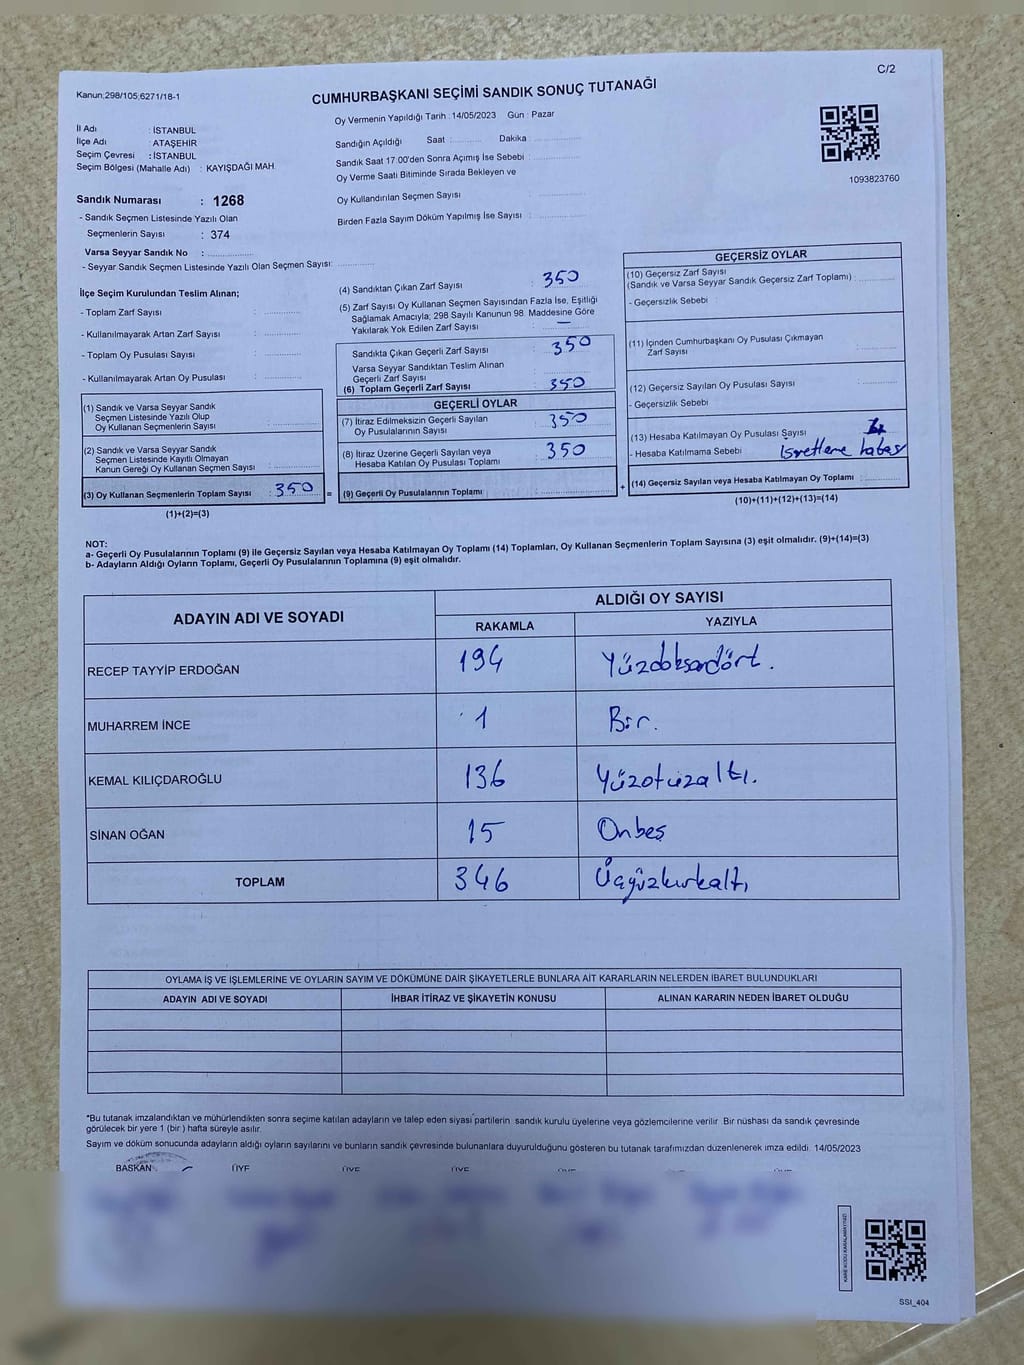 C/2
Kanun;298/105;6271/18-1
CUMHURBAŞKANI SEÇİMİ SANDIK SONUÇ TUTANAĞI
İl Adı : İSTANBUL
İlçe Adı : ATAŞEHİR
Seçim Çevresi : İSTANBUL
Seçim Bölgesi (Mahalle Adı) : KAYIŞDAĞI MAH.
Oy Vermenin Yapıldığı Tarih : 14/05/2023 Gün : Pazar
Sandığın Açıldığı Saat : Dakika
Sandık Saat 17.00'den Sonra Açımış İse Sebebi :
Oy Verme Saati Bitiminde Sırada Bekleyen ve
Oy Kullandırılan Seçmen Sayısı :
Birden Fazla Sayım Döküm Yapılmış İse Sayısı :
1093823760
Sandık Numarası : 1268
- Sandık Seçmen Listesinde Yazılı Olan
Seçmenlerin Sayısı : 374
Varsa Seyyar Sandık No :
- Seyyar Sandık Seçmen Listesinde Yazılı Olan Seçmen Sayısı:
İlçe Seçim Kurulundan Teslim Alınan;
- Toplam Zarf Sayısı :
- Kullanılmayarak Artan Zarf Sayısı :
- Toplam Oy Pusulası Sayısı :
- Kullanılmayarak Artan Oy Pusulası :
(1) Sandık ve Varsa Seyyar Sandık
Seçmen Listesinde Yazılı Olup
Oy Kullanan Seçmenlerin Sayısı :
(2) Sandık ve Varsa Seyyar Sandık
Seçmen Listesinde Kayıtlı Olmayan
Kanun Gereği Oy Kullanan Seçmen Sayısı :
(3) Oy Kullanan Seçmenlerin Toplam Sayısı : 350
(1)+(2)=(3)
(4) Sandıktan Çıkan Zarf Sayısı : 350
(5) Zarf Sayısı Oy Kullanan Seçmen Sayısından Fazla İse, Eşitliği
Sağlamak Amacıyla; 298 Sayılı Kanunun 98. Maddesine Göre
Yakılarak Yok Edilen Zarf Sayısı : —
Sandıkta Çıkan Geçerli Zarf Sayısı : 350
Varsa Seyyar Sandıktan Teslim Alınan
Geçerli Zarf Sayısı
(6) Toplam Geçerli Zarf Sayısı : 350
GEÇERLİ OYLAR
(7) İtiraz Edilmeksizin Geçerli Sayılan
Oy Pusulalarının Sayısı : 350
(8) İtiraz Üzerine Geçerli Sayılan veya
Hesaba Katılan Oy Pusulası Toplamı : 350
= (9) Geçerli Oy Pusulalarının Toplamı :
GEÇERSİZ OYLAR
(10) Geçersiz Zarf Sayısı
(Sandık ve Varsa Seyyar Sandık Geçersiz Zarf Toplamı) :
- Geçersizlik Sebebi :
(11) İçinden Cumhurbaşkanı Oy Pusulası Çıkmayan
Zarf Sayısı :
(12) Geçersiz Sayılan Oy Pusulası Sayısı :
- Geçersizlik Sebebi
(13) Hesaba Katılmayan Oy Pusulası Sayısı
- Hesaba Katılmama Sebebi : İşretleme hatası
+ (14) Geçersiz Sayılan veya Hesaba Katılmayan Oy Toplamı :
(10)+(11)+(12)+(13)=(14)
NOT:
a- Geçerli Oy Pusulalarının Toplamı (9) ile Geçersiz Sayılan veya Hesaba Katılmayan Oy Toplamı (14) Toplamları, Oy Kullanan Seçmenlerin Toplam Sayısına (3) eşit olmalıdır. (9)+(14)=(3)
b- Adayların Aldığı Oyların Toplamı, Geçerli Oy Pusulalarının Toplamına (9) eşit olmalıdır.
ADAYIN ADI VE SOYADI
ALDIĞI OY SAYISI
RAKAMLA YAZIYLA
RECEP TAYYİP ERDOĞAN 194 Yüzdoksandört.
MUHARREM İNCE 1 Bir.
KEMAL KILIÇDAROĞLU 136 Yüzotuzaltı.
SİNAN OĞAN 15 Onbeş
TOPLAM 346 Üçyüzkırkaltı
OYLAMA İŞ VE İŞLEMLERİNE VE OYLARIN SAYIM VE DÖKÜMÜNE DAİR ŞİKAYETLERLE BUNLARA AİT KARARLARIN NELERDEN İBARET BULUNDUKLARI
ADAYIN ADI VE SOYADI İHBAR İTİRAZ VE ŞİKAYETİN KONUSU ALINAN KARARIN NEDEN İBARET OLDUĞU
*Bu tutanak imzalandıktan ve mühürlendikten sonra seçime katılan adayların ve talep eden siyasi partilerin sandık kurulu üyelerine veya gözlemcilerine verilir. Bir nüshası da sandık çevresinde
görülecek bir yere 1 (bir) hafta süreyle asılır.
Sayım ve döküm sonucunda adayların aldığı oyların sayılarını ve bunların sandık çevresinde bulunanlara duyurulduğunu gösteren bu tutanak tarafımızdan düzenlenerek imza edildi. 14/05/2023
BAŞKAN ÜYE ÜYE ÜYE ÜYE ÜYE
SSI_404